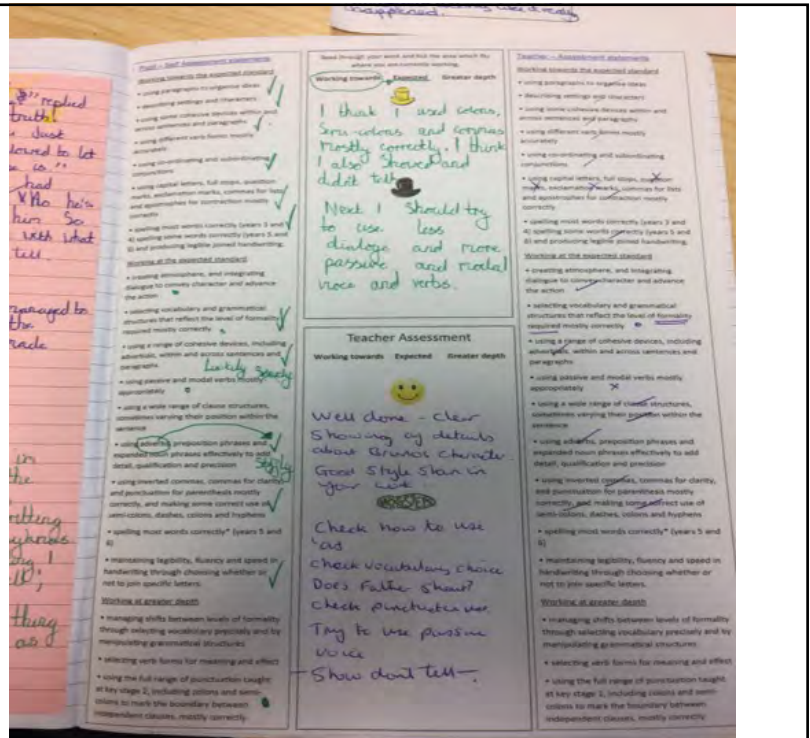 happened.
replied
truth!
Just
lowed to let
is."
had
Who he's
him So
with what
tell.
managed to
the
in
the
thing
as
Pupil – Self Assessment statements
Working towards the expected standard
• using paragraphs to organise ideas
• describing settings and characters
• using some cohesive devices within and
across sentences and paragraphs
• using different verb forms mostly
accurately
• using co-ordinating and subordinating
conjunctions
• using capital letters, full stops, question
marks, exclamation marks, commas for lists
and apostrophes for contraction mostly
correctly
• spelling most words correctly (years 3 and
4) spelling some words correctly (years 5 and
6) and producing legible joined handwriting.
Working at the expected standard
• creating atmosphere, and integrating
dialogue to convey character and advance
the action
• selecting vocabulary and grammatical
structures that reflect the level of formality
required mostly correctly
• using a range of cohesive devices, including
adverbials, within and across sentences and
paragraphs
• using passive and modal verbs mostly
appropriately
• using a wide range of clause structures,
sometimes varying their position within the
sentence
• using adverbs, preposition phrases and
expanded noun phrases effectively to add
detail, qualification and precision
• using inverted commas, commas for clarity,
and punctuation for parenthesis mostly
correctly, and making some correct use of
semi-colons, dashes, colons and hyphens
• spelling most words correctly* (years 5 and
6)
• maintaining legibility, fluency and speed in
handwriting through choosing whether or
not to join specific letters.
Working at greater depth
• managing shifts between levels of formality
through selecting vocabulary precisely and by
manipulating grammatical structures
• selecting verb forms for meaning and effect
• using the full range of punctuation taught
at key stage 2, including colons and semi-
colons to mark the boundary between
independent clauses, mostly correctly.
Read through your work and tick the area which
where you are currently working.
Working towards Expected Greater depth
I think I used colons,
Semi-colons and commas
mostly correctly. I think
I also Showed and
didn't tell
Next I Should try
to use less
dialoge and more
passive and modal
voice and verbs.
Teacher Assessment
Working towards Expected Greater depth
Well done - clear
Showing of details
about Brunos
Good Style Slam in
your work
Check how to use
'as
check vocabulary choice
Does Father Shout?
check punctuation
Try to use passive
voice
- Show dont tell -
Teacher – Assessment statements
Working towards the expected standard
• using paragraphs to organise ideas
• describing settings and characters
• using some cohesive devices within and
across sentences and paragraphs
• using different verb forms mostly
accurately
• using co-ordinating and subordinating
conjunctions
• using capital letters, full stops, question
marks, exclamation marks, commas for lists
and apostrophes for contraction mostly
correctly
• spelling most words correctly (years 3 and
4) spelling some words correctly (years 5 and
6) and producing legible joined handwriting.
Working at the expected standard
• creating atmosphere, and integrating
dialogue to convey character and advance
the action
• selecting vocabulary and grammatical
structures that reflect the level of formality
required mostly correctly
• using a range of cohesive devices, including
adverbials, within and across sentences and
paragraphs
• using passive and modal verbs mostly
appropriately
• using a wide range of clause structures,
sometimes varying their position within the
sentence
• using adverbs, preposition phrases and
expanded noun phrases effectively to add
detail, qualification and precision
• using inverted commas, commas for clarity,
and punctuation for parenthesis mostly
correctly, and making some correct use of
semi-colons, dashes, colons and hyphens
• spelling most words correctly* (years 5 and
6)
• maintaining legibility, fluency and speed in
handwriting through choosing whether or
not to join specific letters.
Working at greater depth
• managing shifts between levels of formality
through selecting vocabulary precisely and by
manipulating grammatical structures
• selecting verb forms for meaning and effect
• using the full range of punctuation taught
at key stage 2, including colons and semi-
colons to mark the boundary between
independent clauses, mostly correctly.